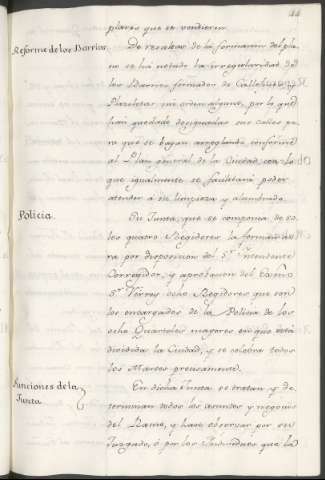 44
plares que se vendieren.
Reforma de los Barrios.
De resultas de la formacion del pla-
no se há notado la irregularidad de
los Barrios formados de Callejuelas y
Plazuelas sin orden alguno, por lo que
han quedado designadas sus calles pa-
ra que se bayan arreglando conforme
al Plan general de la Ciudad, con lo
que igualmente se facilitará poder
atender á su limpieza y alumbrado.
Policia.
En Junta, que se componia de so-
los quatro Regidores la forman aho-
ra por disposicion del Sr. Yntendente
Corregidor, y aprobacion del Exmo.
Sor. Virrey ocho Regidores que son
los encargados de la Policia de los
ocho Quarteles mayores en que está
dividida la Ciudad, y se celebra todos
los Martes precisamente.
Funciones de la
Junta.
En dicha Junta se tratan y de-
terminan todos los asuntos y negocios
del Ramo, y hace observar por su
Juzgado, ó por los Individuos que la